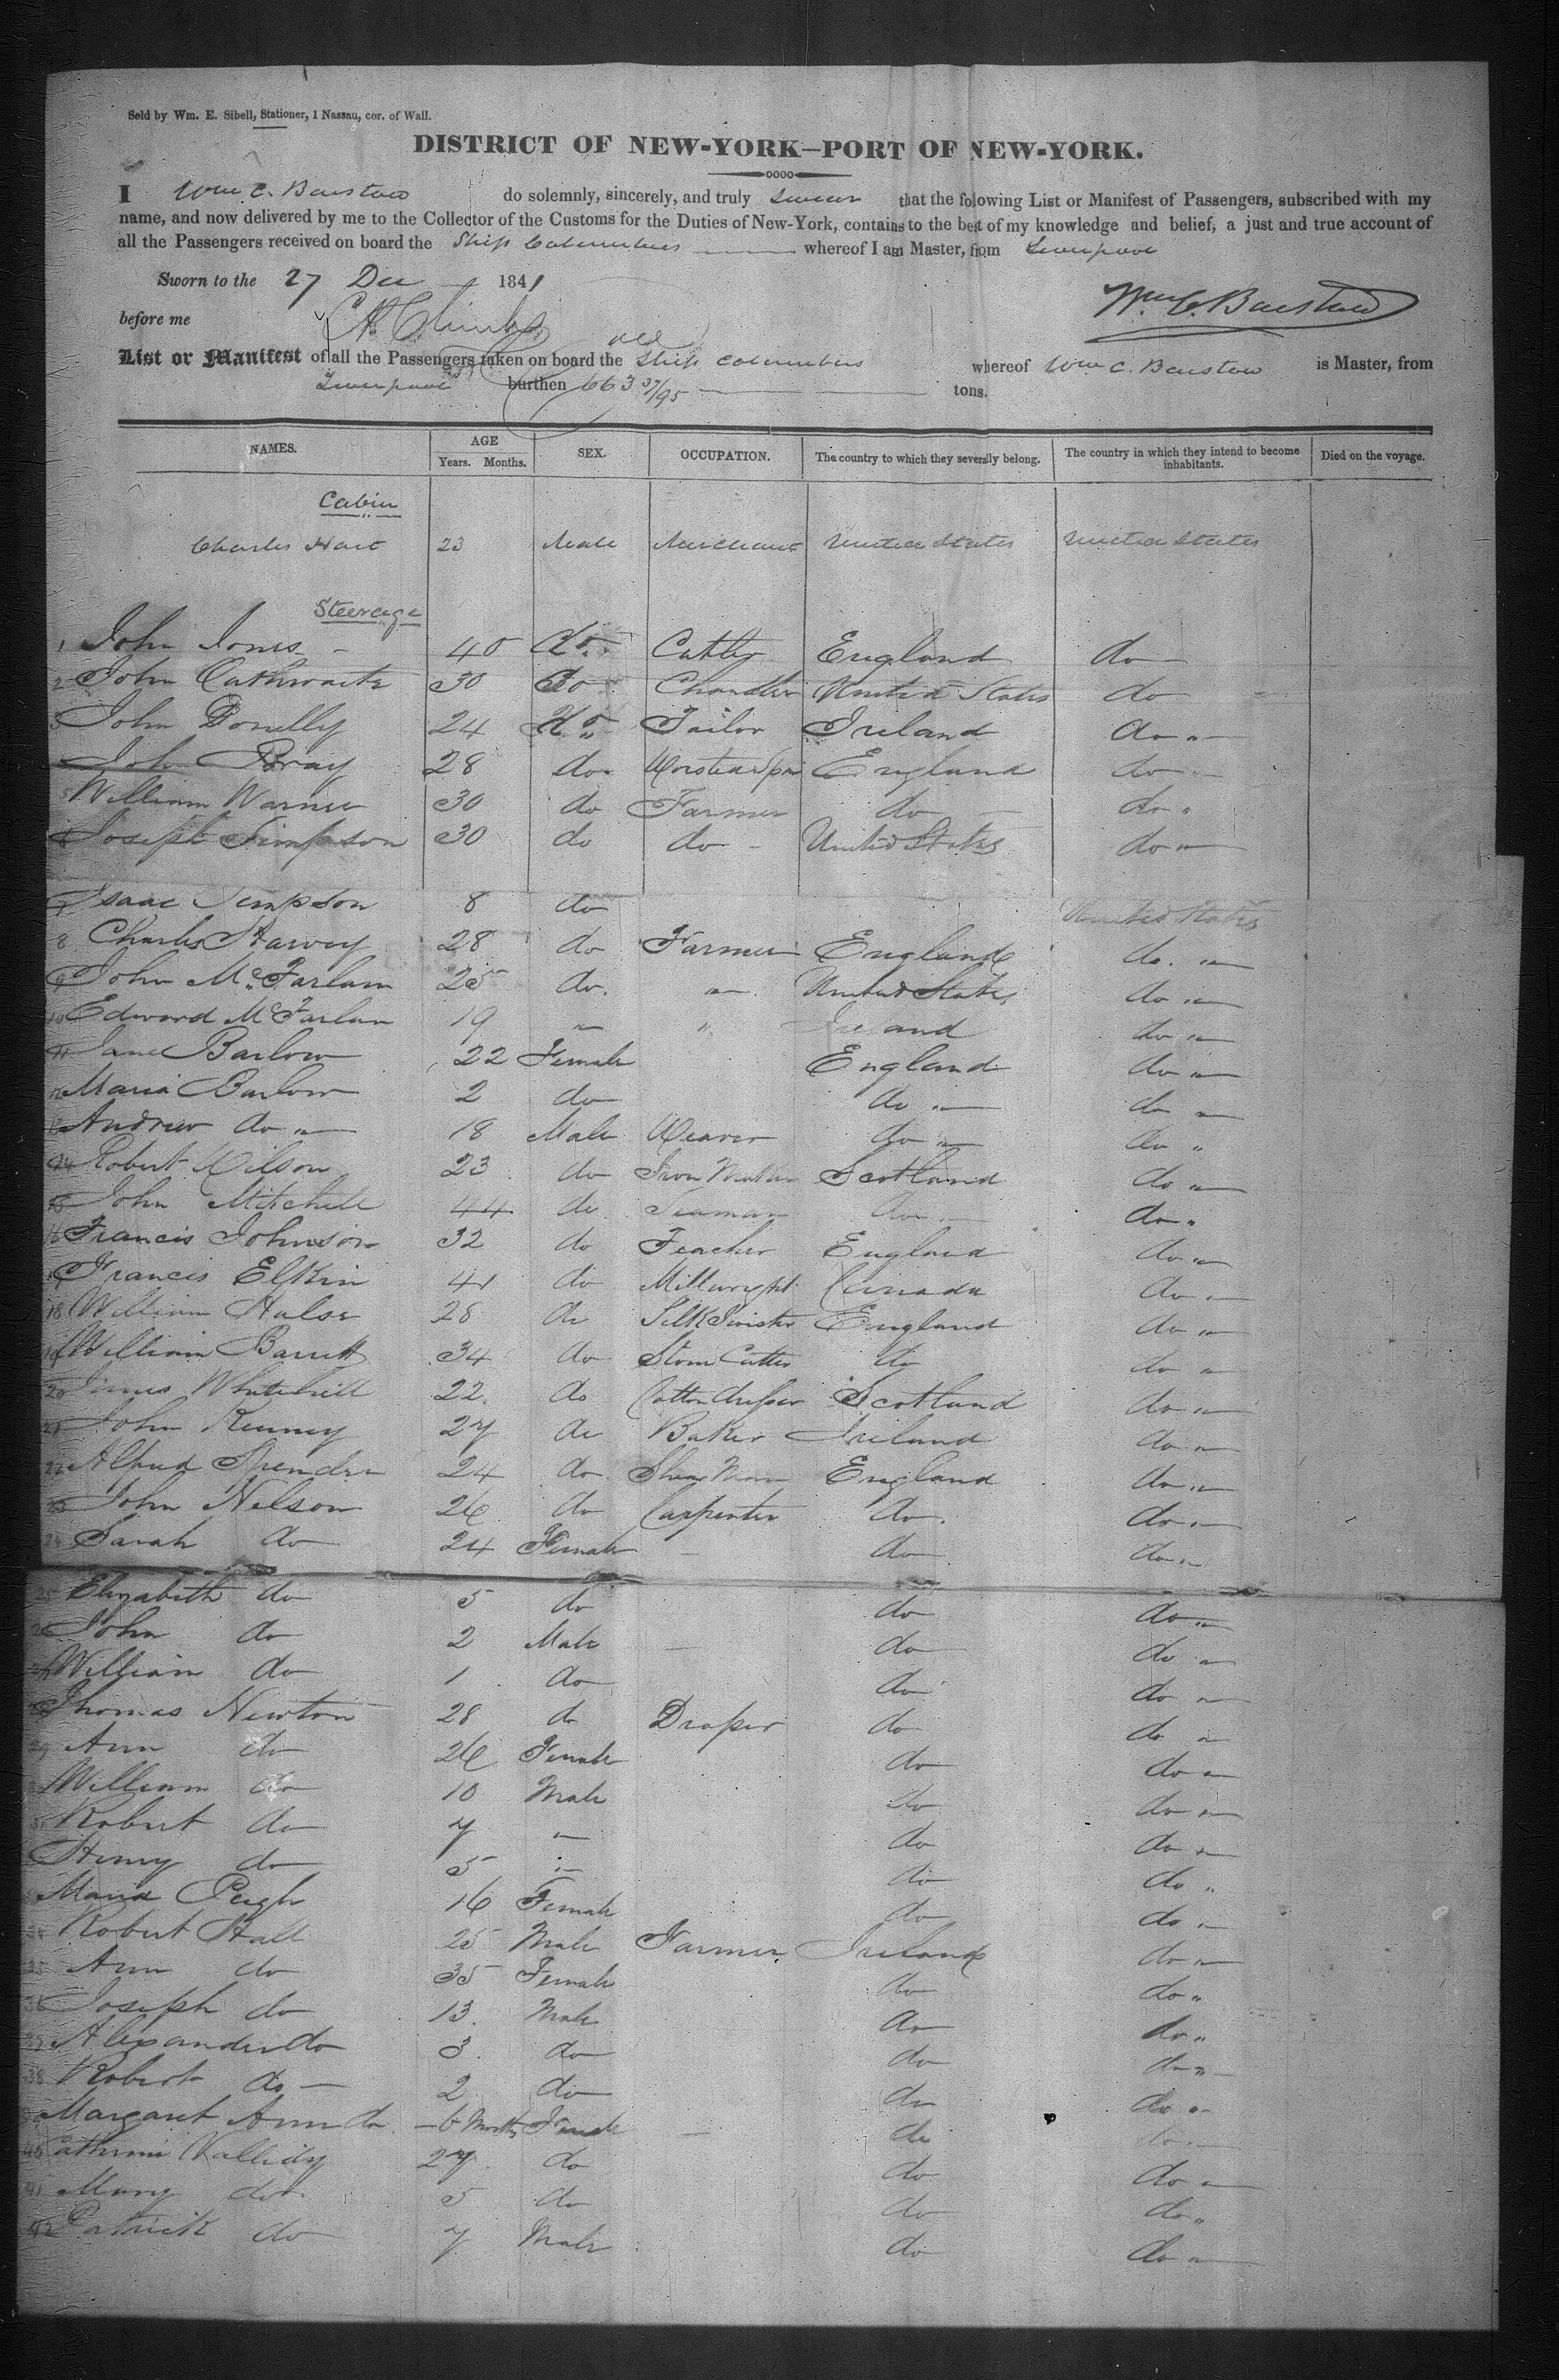 Sold by Wm. E. Sibell, Stationer, 1 Nassau, cor. of Wall.
DISTRICT OF NEW-YORK—PORT OF NEW-YORK.
I Wm C. Barstow do solemnly, sincerely, and truly swear that the folowing List or Manifest of Passengers, subscribed with my
name, and now delivered by me to the Collector of the Customs for the Duties of New-York, contains to the best of my knowledge and belief, a just and true account of
all the Passengers received on board the Ship Columbus whereof I am Master, from Liverpool
Sworn to the 27 Dec 1841
Wm C. Barstow
before me
List or Manifest of all the Passengers taken on board the Ship Columbus whereof Wm C. Barstow is Master, from
Liverpool burthen 663 37/95 tons.
NAMES. AGE Years. Months. SEX. OCCUPATION. The country to which they severally belong. The country in which they intend to become inhabitants. Died on the voyage.
Cabin
Charles Hart 23 Male Merchant United States United States
Steerage
1 John Jones 40 do Cutler England do
2 John Cathwaite 30 do Chandler United States do
3 John Donelly 24 do Tailor Ireland do "
John Bray 28 do England do "
5 William Warner 30 do Farmer do do "
6 Joseph Simpson 30 do do United States do "
7 Isaac Simpson 8 do United States
8 Charles Harvey 28 do Farmer England do "
9 John McFarlam 25 do " United States do "
10 Edward McFarlan 19 " " Ireland do "
11 Jane Barlow 22 Female England do "
12 Maria Barlow 2 do do " do "
13 Andrew do " 18 Male Weaver do " do "
14 Robert Wilson 23 do Scotland do "
15 John Mitchell 44 do Seaman do " do "
16 Francis Johnson 32 do Teacher England do "
17 Francis Elkin 41 do Millwright Canada do "
18 William Hulse 28 do Silk Twister England do "
19 William Barrett 34 do Stone Cutter do do "
20 James Whitehill 22 do Cotton dresser Scotland do "
21 John Kenney 27 do Baker Ireland do "
22 Alfred Spender 24 do England do "
23 John Nelson 26 do Carpenter do do "
24 Sarah do 24 Female do do "
25 Elizabeth do 5 do do do "
26 John do 2 Male do do "
27 William do 1 do do do "
28 Thomas Newton 28 do Draper do do "
29 Ann do 26 Female do do "
William do 10 Male do do "
Robert do 7 " do do "
Henry do 5 " do do "
Maria Pugh 16 Female do do "
34 Robert Hall 25 Male Farmer Ireland do "
35 Ann do 35 Female do do "
36 Joseph do 13 Male do do "
37 Alexander do 3 do do do "
38 Robert do 2 do do do "
39 Margaret Ann do 6 Months Female do do "
40 Cathrine Vallidy 27 do do do "
41 Mary do 5 do do do "
42 Patrick do 7 Male do do "